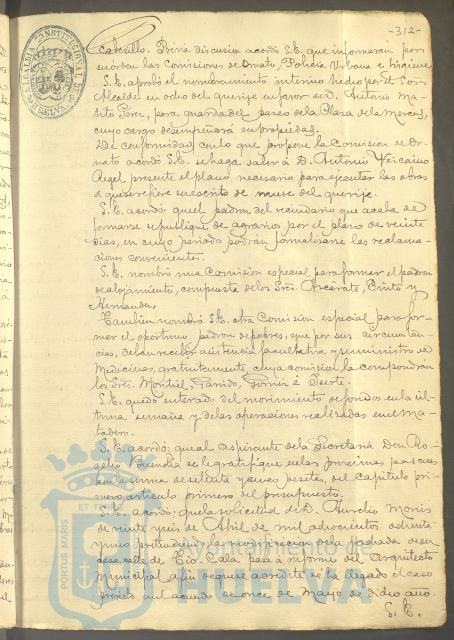 -312-
ALCALDIA CONSTITUCIONAL DE HUELVA
cabecillo. Previa discusion acordó S.E. que informaran por
su orden las Comisiones de Ornato, Policía Urbana e higiene
S.E. aprobó el nombramiento interino hecho por el Sor.
Alcalde en ocho del que rije en favor de D. Antonio
Perez, para guarda del paseo de la Plaza de la Merced,
cuyo cargo desempeñará en propiedad.
De conformidad con lo que propone la Comision de Or-
nato acordó S.E. se haga saber á D. Antonio Vizcaino
Angel presente el plano necesario para ejecutar las obras
á que se refiere su escrito de nueve del que rije.
S.E. acordó que el padron del vecindario que acaba de
formarse se publique de agravios por el plazo de veinte
dias, en cuyo periodo podran formalizarse las reclama-
ciones convenientes.
S.E. nombró una Comision especial para formar el padron
de alojamiento, compuesta de los Sres. Azcárate, Pinto y
Hernandez.
Tambien nombró S.E. otra Comision especial para for-
mar el oportuno padron de pobres, que por sus circunstan-
cias, deban recibir asistencia facultativa y suministro de
Medicinas, gratuitamente, cuya comision la compondran
los Sres. Montiel, Garrido,
S.E. quedó enterado del movimiento de fondos en la úl-
tima semana y de las operaciones realizadas en el Ma-
tadero.
S.E. acordó que al aspirante de la Secretaría Don Ro-
gelio Buendia se le gratifique en las proximas pascuas
con la suma de setenta y cinco pesetas, del capítulo pri-
mero artículo primero del presupuesto.
S.E. acordó que la solicitud de D. Aurelio
de veinte y seis de Abril de mil ochocientos ochenta
y uno pretendiendo la modificacion de la fachada de su
casa calle de Tio Cala pase á informe del Arquitecto
Municipal afin de que se acredite si ha llegado el caso
previsto en el acuerdo de once de Mayo de dicho año.
S. E.
PORTUS MARIS ET TERRAE
Ayuntamiento de
HUELVA